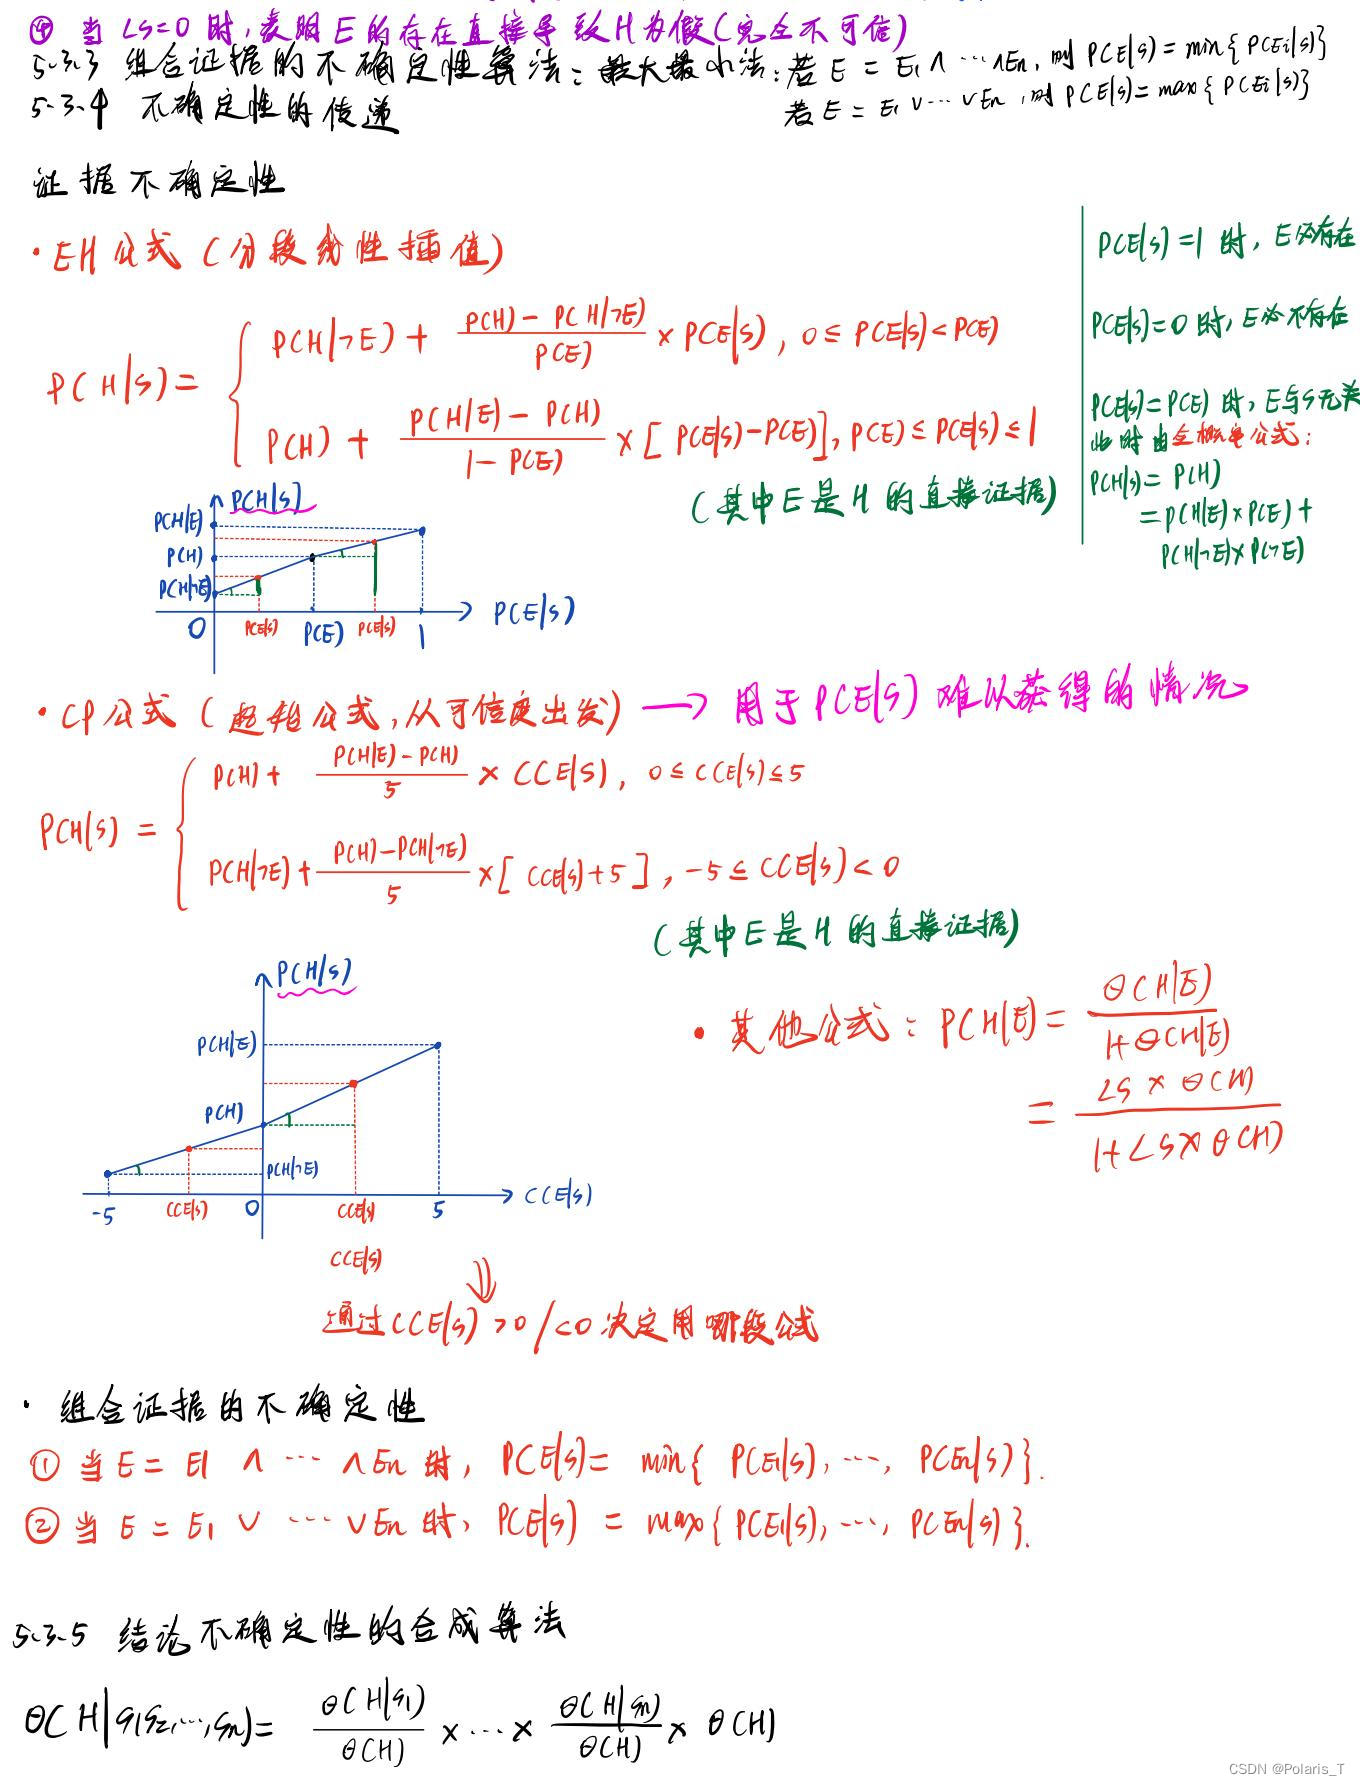 ④ 当 LS=0 时,表明 E 的存在直接导致 H 为假(完全不可信)
5.3.3 组合证据的不确定性算法:最大最小法:若 E = E₁ ∧ … ∧ En, 则 P(E|S) = min{ P(Ei|S)}
若 E = E₁ ∨ … ∨ En, 则 P(E|S) = max{ P(Ei|S)}
5.3.4 不确定性的传递
证据不确定性
· EH公式 (分段线性插值)
P(H|S) = { P(H|¬E) + (P(H) - P(H|¬E))/P(E) × P(E|S), 0 ≤ P(E|S) < P(E)
P(H) + (P(H|E) - P(H))/(1 - P(E)) × [ P(E|S) - P(E)], P(E) ≤ P(E|S) ≤ 1
(其中 E 是 H 的直接证据)
P(E|S) = 1 时, E必存在
P(E|S) = 0 时, E必不存在
P(E|S) = P(E) 时, E与S无关
此时由全概率公式:
P(H|S) = P(H)
= P(H|E) × P(E) +
P(H|¬E) × P(¬E)
P(H|S)
P(H|E)
P(H)
P(H|¬E)
0 P(E|S) P(E) P(E|S) 1 P(E|S)
· CP公式 (起始公式,从可信度出发) → 用于 P(E|S) 难以获得的情况
P(H|S) = { P(H) + (P(H|E) - P(H))/5 × C(E|S), 0 ≤ C(E|S) ≤ 5
P(H|¬E) + (P(H) - P(H|¬E))/5 × [ C(E|S) + 5 ], -5 ≤ C(E|S) < 0
(其中 E 是 H 的直接证据)
P(H|S)
P(H|E)
P(H)
P(H|¬E)
-5 C(E|S) 0 C(E|S) 5 C(E|S)
C(E|S)
⇓
通过 C(E|S) >0 / <0 决定用哪段公式
· 其他公式: P(H|E) = Θ(H|E)/(1+Θ(H|E))
= (LS × Θ(H))/(1+LS × Θ(H))
· 组合证据的不确定性
① 当 E = E1 ∧ … ∧ En 时, P(E|S) = min{ P(E₁|S), …, P(En|S) }.
② 当 E = E₁ ∨ … ∨ En 时, P(E|S) = max{ P(E₁|S), …, P(En|S) }.
5.3.5 结论不确定性的合成算法
Θ(H|S₁S₂,…,Sn) = Θ(H|S₁)/Θ(H) × … × Θ(H|Sn)/Θ(H) × Θ(H)
CSDN @Polaris_T